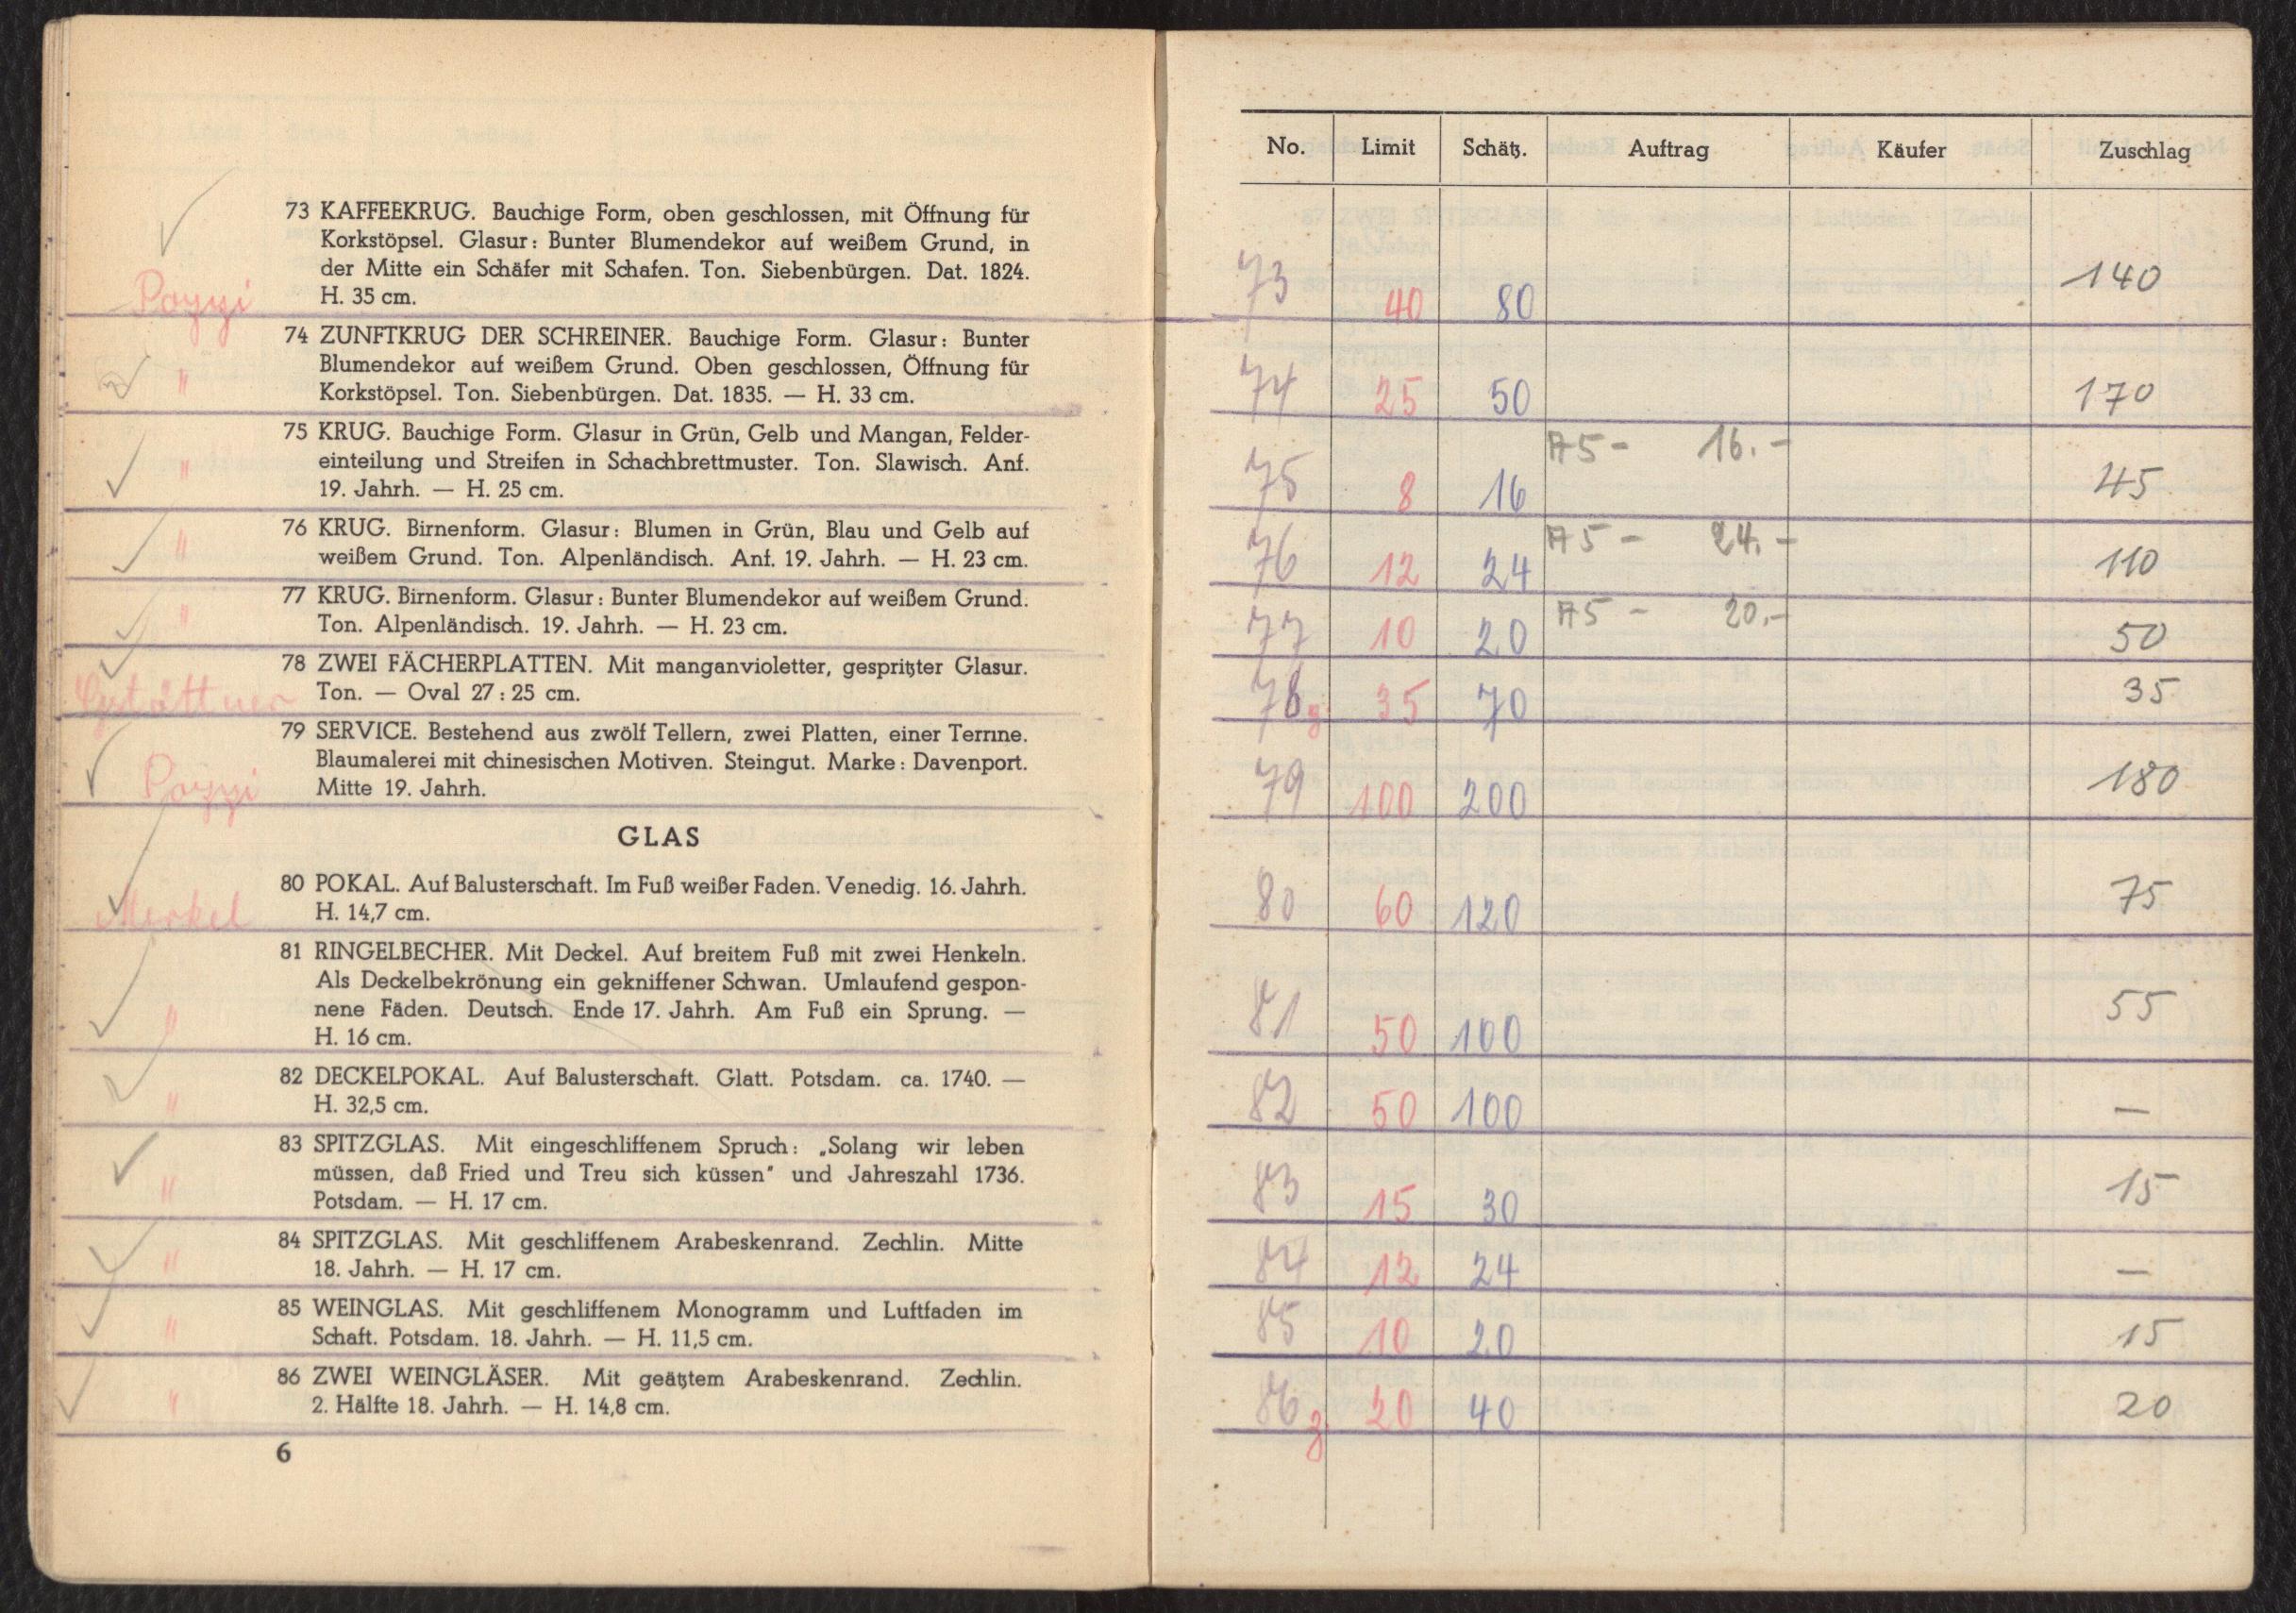 73 KAFFEEKRUG. Bauchige Form, oben geschlossen, mit Öffnung für
Korkstöpsel. Glasur: Bunter Blumendekor auf weißem Grund, in
der Mitte ein Schäfer mit Schafen. Ton. Siebenbürgen. Dat. 1824.
Pozzi H. 35 cm.
74 ZUNFTKRUG DER SCHREINER. Bauchige Form. Glasur: Bunter
Blumendekor auf weißem Grund. Oben geschlossen, Öffnung für
" Korkstöpsel. Ton. Siebenbürgen. Dat. 1835. — H. 33 cm.
75 KRUG. Bauchige Form. Glasur in Grün, Gelb und Mangan, Felder-
" einteilung und Streifen in Schachbrettmuster. Ton. Slawisch. Anf.
19. Jahrh. — H. 25 cm.
76 KRUG. Birnenform. Glasur: Blumen in Grün, Blau und Gelb auf
" weißem Grund. Ton. Alpenländisch. Anf. 19. Jahrh. — H. 23 cm.
77 KRUG. Birnenform. Glasur: Bunter Blumendekor auf weißem Grund.
" Ton. Alpenländisch. 19. Jahrh. — H. 23 cm.
78 ZWEI FÄCHERPLATTEN. Mit manganvioletter, gespritzter Glasur.
Gstöttner Ton. — Oval 27:25 cm.
79 SERVICE. Bestehend aus zwölf Tellern, zwei Platten, einer Terrine.
Blaumalerei mit chinesischen Motiven. Steingut. Marke: Davenport.
Pozzi Mitte 19. Jahrh.
GLAS
80 POKAL. Auf Balusterschaft. Im Fuß weißer Faden. Venedig. 16. Jahrh.
Merkel H. 14,7 cm.
81 RINGELBECHER. Mit Deckel. Auf breitem Fuß mit zwei Henkeln.
Als Deckelbekrönung ein gekniffener Schwan. Umlaufend gespon-
" nene Fäden. Deutsch. Ende 17. Jahrh. Am Fuß ein Sprung. —
H. 16 cm.
82 DECKELPOKAL. Auf Balusterschaft. Glatt. Potsdam. ca. 1740. —
" H. 32,5 cm.
83 SPITZGLAS. Mit eingeschliffenem Spruch: „Solang wir leben
" müssen, daß Fried und Treu sich küssen" und Jahreszahl 1736.
Potsdam. — H. 17 cm.
84 SPITZGLAS. Mit geschliffenem Arabeskenrand. Zechlin. Mitte
" 18. Jahrh. — H. 17 cm.
85 WEINGLAS. Mit geschliffenem Monogramm und Luftfaden im
" Schaft. Potsdam. 18. Jahrh. — H. 11,5 cm.
86 ZWEI WEINGLÄSER. Mit geätztem Arabeskenrand. Zechlin.
" 2. Hälfte 18. Jahrh. — H. 14,8 cm.
6
No. Limit Schätz. Auftrag Käufer Zuschlag
73 40 80 140
74 25 50 170
75 8 16 A5 - 16.- 45
76 12 24 A5 - 24.- 110
77 10 20 A5 - 20.- 50
78 35 70 35
79 100 200 180
80 60 120 75
81 50 100 55
82 50 100 —
83 15 30 15
84 12 24 —
85 10 20 15
86 20 40 20